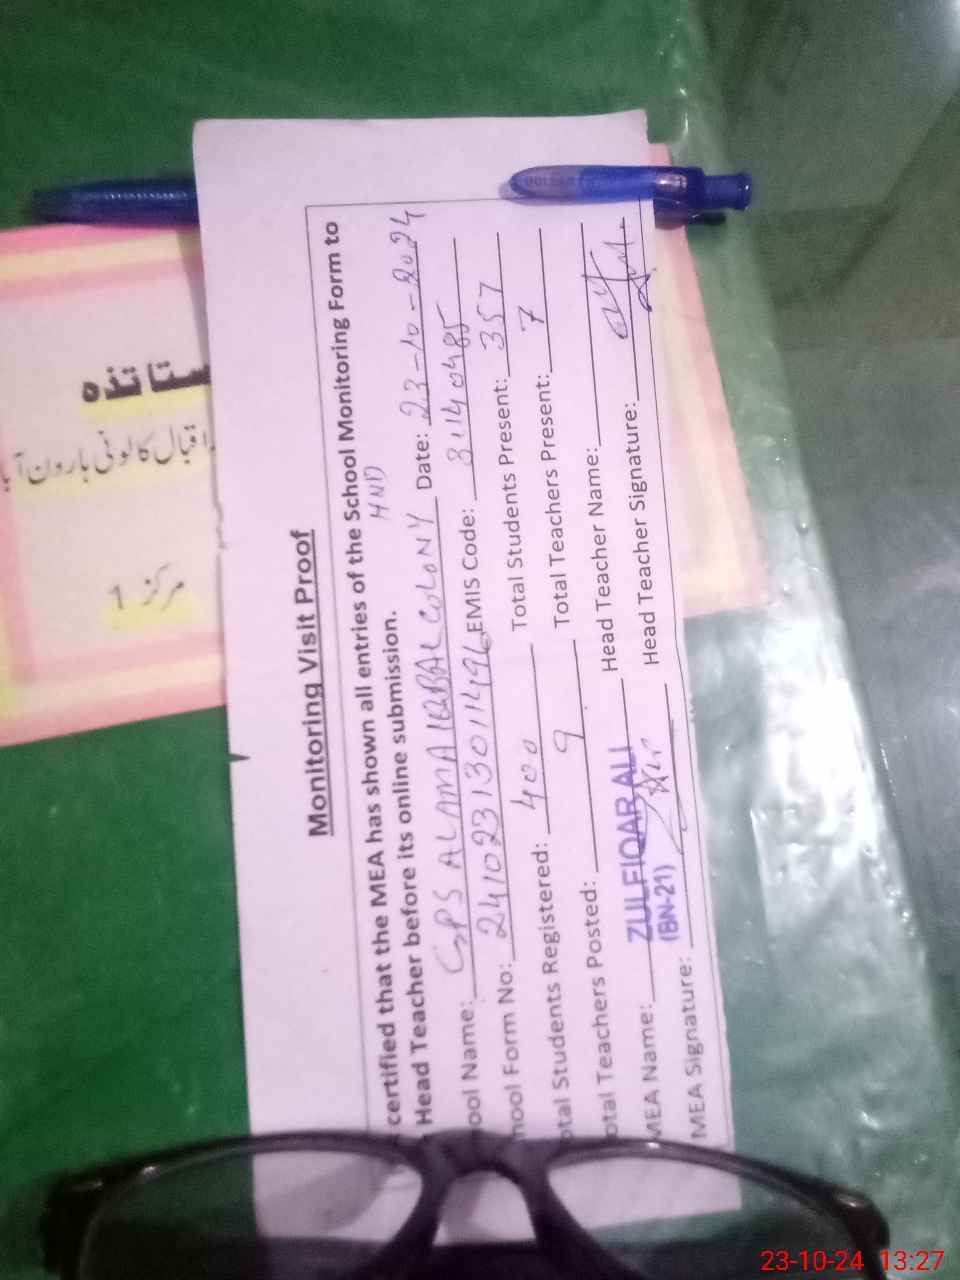 Monitoring Visit Proof
certified that the MEA has shown all entries of the School Monitoring Form to
Head Teacher before its online submission.
HND
ool Name: GPS ALAMA IQBAL COLONY Date: 23-10-2024
hool Form No: 241023130111496 EMIS Code: 31140485
otal Students Registered: 400 Total Students Present: 357
otal Teachers Posted: 9 Total Teachers Present: 7
MEA Name: ZULFIQAR ALI Head Teacher Name:
(BN-21)
MEA Signature: Head Teacher Signature:
ستاتذہ
اقبال کالونی ہارون آبا
مرکز 1
23-10-24 13:27